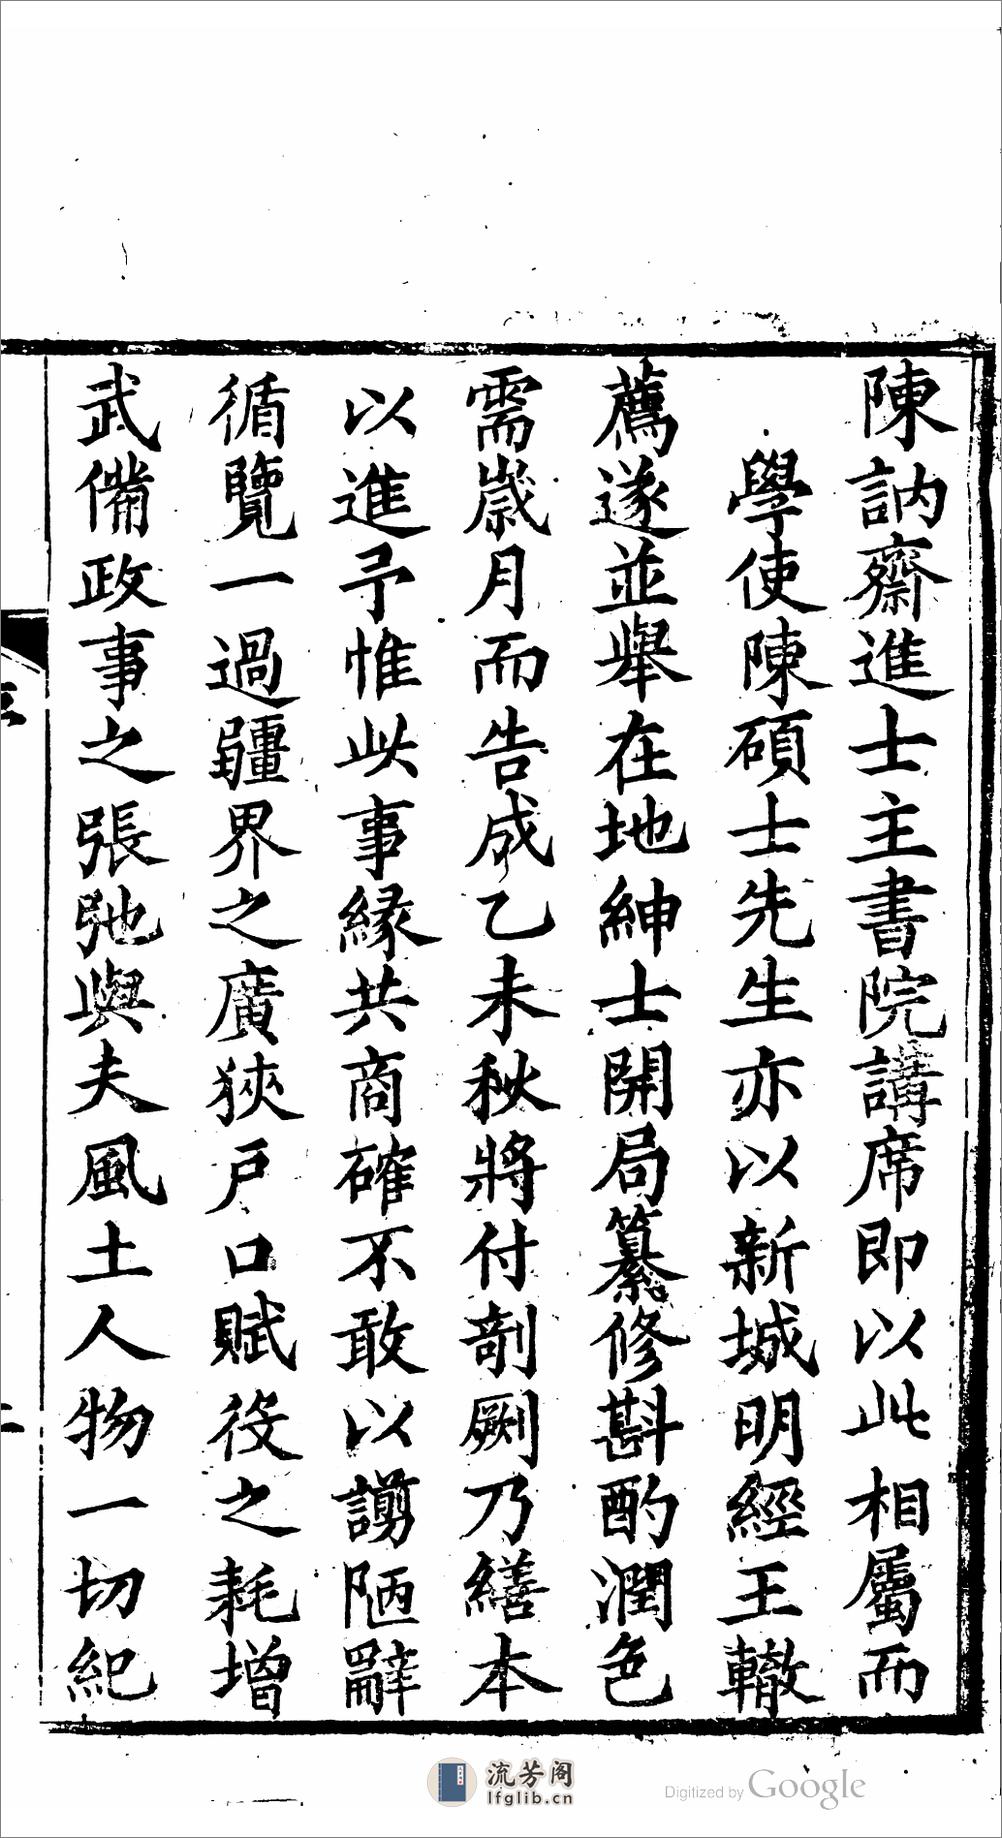 陳訥齋進士主書院講席即以此相屬而
學使陳碩士先生亦以新城明經王轍
薦遂並舉在地紳士開局纂修斟酌潤色
需歲月而告成乙未秋將付剞劂乃繕本
以進予惟此事緣共商確不敢以謭陋辭
循覽一過疆界之廣狹戶口賦役之耗增
武備政事之張弛與夫風土人物一切紀
流芳阁
lfglib.cn
Digitized by Google